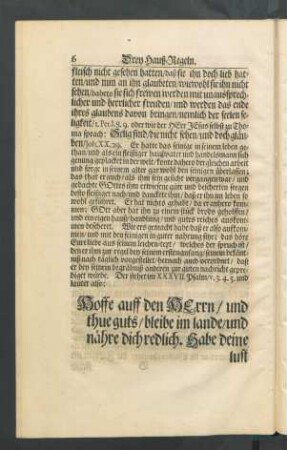 6 Drey Hauß-Regeln.
fleisch nicht gesehen hatten/ daß sie ihn doch lieb hat-
ten/ und nun an ihn glaubeten/ wiewohl sie ihn nicht
sehen/ dahero sie sich frewen werden mit unaußsprech-
licher und herrlicher freuden/ und werden das ende
ihres glaubens davon bringen/ nemlich der seelen se-
ligkeit/ 1. Pet. I. 8. 9. oder wie der HErr JEsus selbst zu Tho-
ma sprach: Selig sind/ die nicht sehen/ und doch glau-
ben/ Joh. XX. 29. Er hatte das seinige in seinem leben ge-
than/ und als ein fleißiger haußvater und handelsmann sich
genung geplacket in der welt: konte dahero dergleichen arbeit
und sorge in seinem alter gar wohl den seinigen überlassen
gedachte GOttes ihm erwiesene güte und bescherten segen
desto fleißiger nach/ und danckete ihm/ daß er ihn im leben so
wohl geführet. Er hat nichts gehabt/ da er anhero kom-
men; GOtt aber hat ihm zu einem stück brods geholffen/
und ein eigen hauß/ handlung/ und gutes reiches auskom-
men bescheret. Wie ers gemacht habe/ daß er also auskom-
men/ und mit den seinigen in guter nahrung sitze; das höre
Eure liebe aus seinem leichen-text/ welches der spruch ist/
den er ihm zur regel bey seinem ersten anfang/ seinem
nach täglich vorgestellet: hernach auch verordnet/ daß
er bey seinem begräbniß anderen zur guten nachricht gepre-
diget würde. Der stehet im XXXVII. Psalm/ v. 3. 4. 5. und
lautet also:
Hoffe auff den HErrn/ und
thue guts/ bleibe im lande/ und
nähre dich redlich. Habe deine
lust